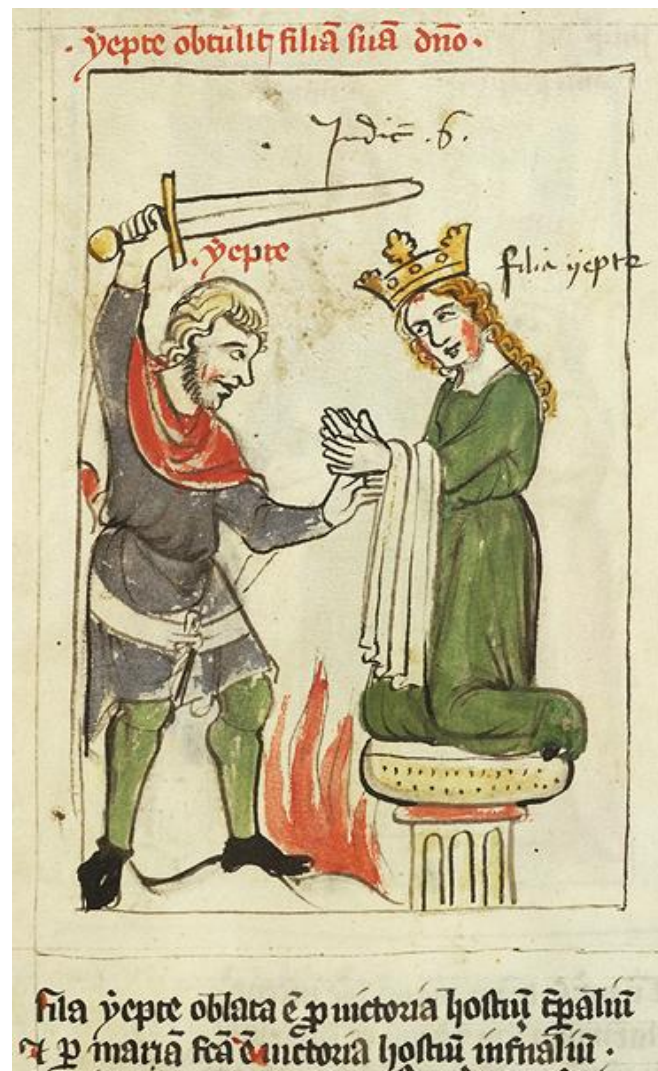 · yepte obtulit filiā suā dn̄o ·
Judic̄ . 6 .
· yepte
filia yepte
fila yepte oblata ē ꝓ uictoria hostiū tp̄aliū
⁊ ꝑ mariā fca ē uictoria hostiū infn̄aliū ·